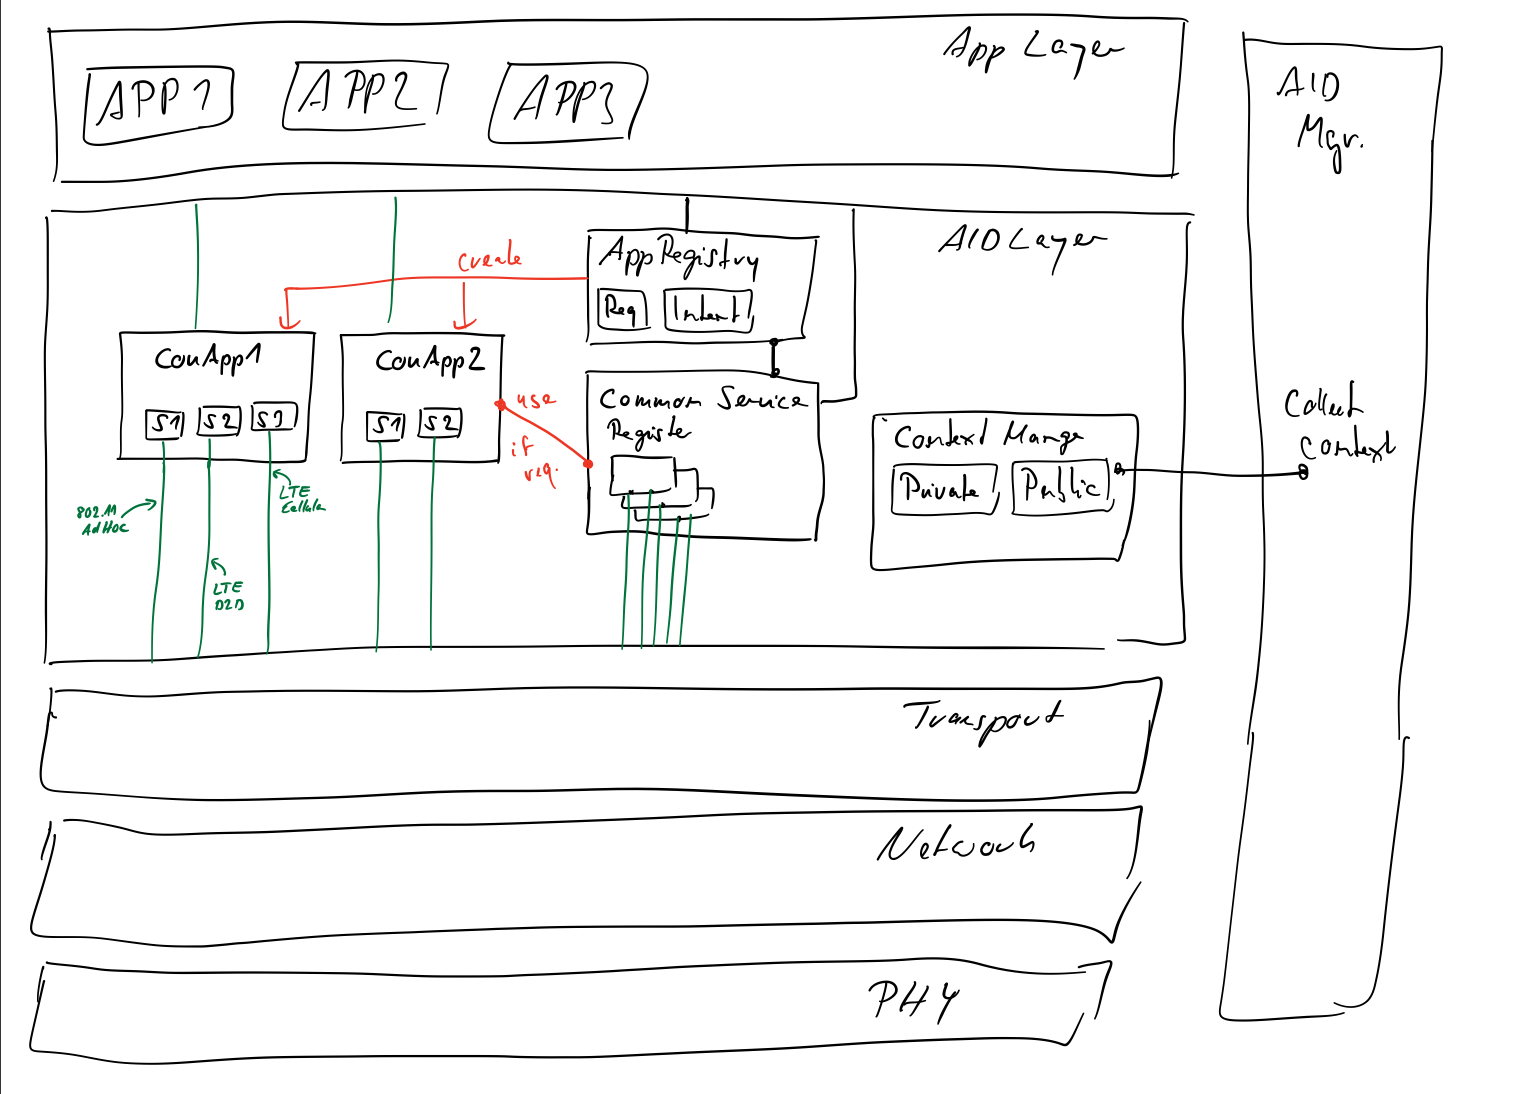 App Layer
APP1
APP2
APP3
AID
Mgr.
AID Layer
create
App Registry
Req
Intent
ConApp1
S1
S2
S3
ConApp2
S1
S2
use
if
req.
Common Service
Register
Context Mange
Private
Public
Collect
Context
802.11
AdHoc
LTE
Cellula
LTE
D2D
Transport
Network
PHY